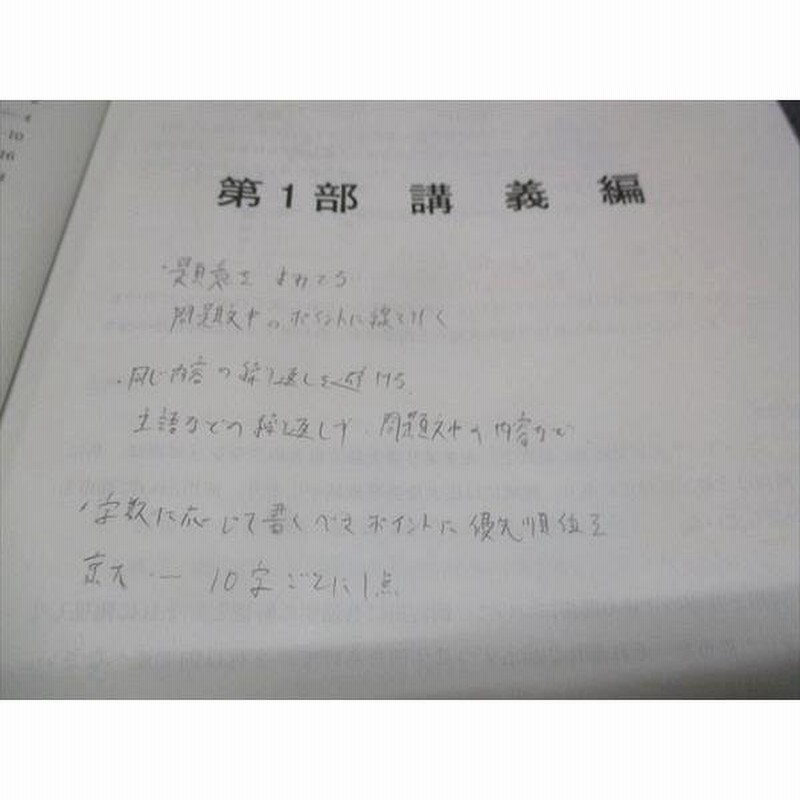 4
10
16
第1部 講義編
・題意を
問題文中のポイントに線を引く
・同じ内容の繰り返しを避ける
主語などの繰り返しや 問題文中の内容など
・字数に応じて書くべきポイントに優先順位を
京大 ー 10字ごとに1点